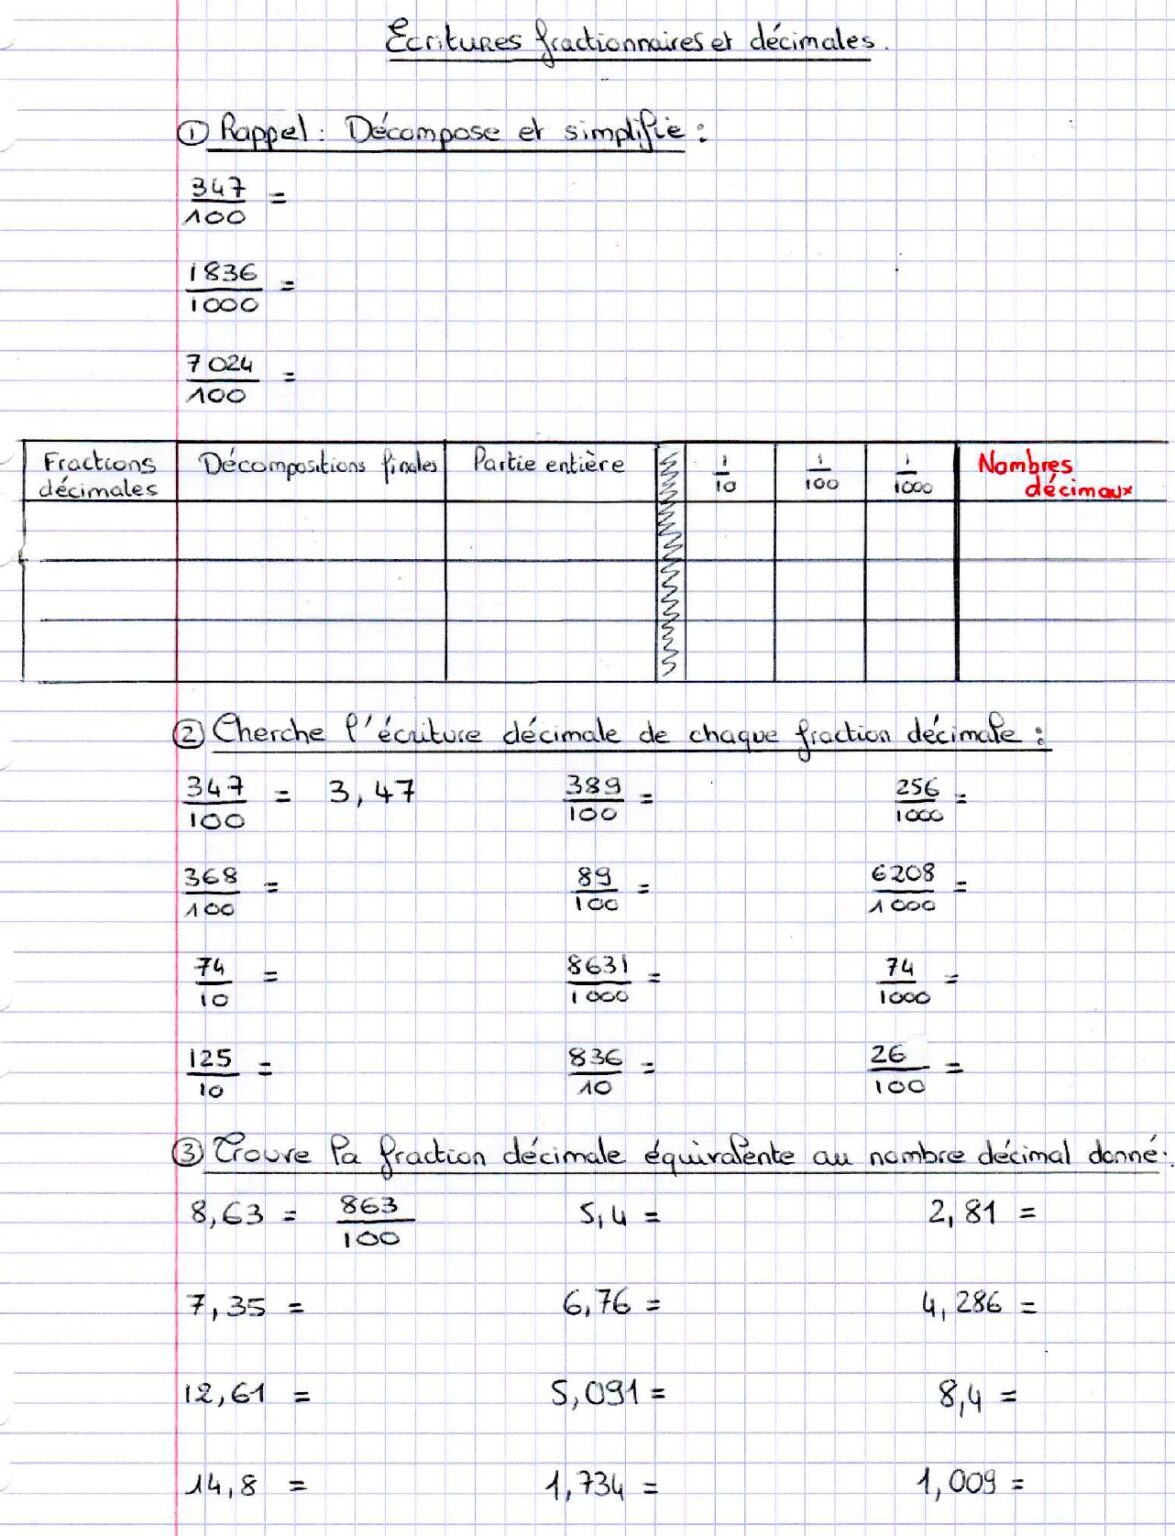 Ecritures fractionnaires et décimales.
① Rappel : Décompose et simplifie :
347/100 =
1836/1000 =
7024/100 =
Fractions décimales | Décompositions finales | Partie entière | 1/10 | 1/100 | 1/1000 | Nombres décimaux
② Cherche l'écriture décimale de chaque fraction décimale :
347/100 = 3,47 389/100 = 256/1000 =
368/100 = 89/100 = 6208/1000 =
74/10 = 8631/1000 = 74/1000 =
125/10 = 836/10 = 26/100 =
③ Trouve la fraction décimale équivalente au nombre décimal donné :
8,63 = 863/100 5,4 = 2,81 =
7,35 = 6,76 = 4,286 =
12,61 = 5,091 = 8,4 =
14,8 = 1,734 = 1,009 =